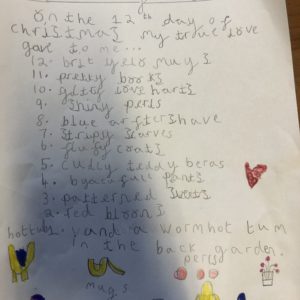 on the 12th day of
christmas my true love
gave to me...
12. brit yelo mugs
11. pretty books
10. love harts
9. shiny perls
8. blue arftershave
7. stripy scarves
6. flufy coats
5. cudly teddy beras
4. pants
3. patterned sweets
2. red bloons
hottub 1. and a wormhot tum
in the back garden.
perls
mugs